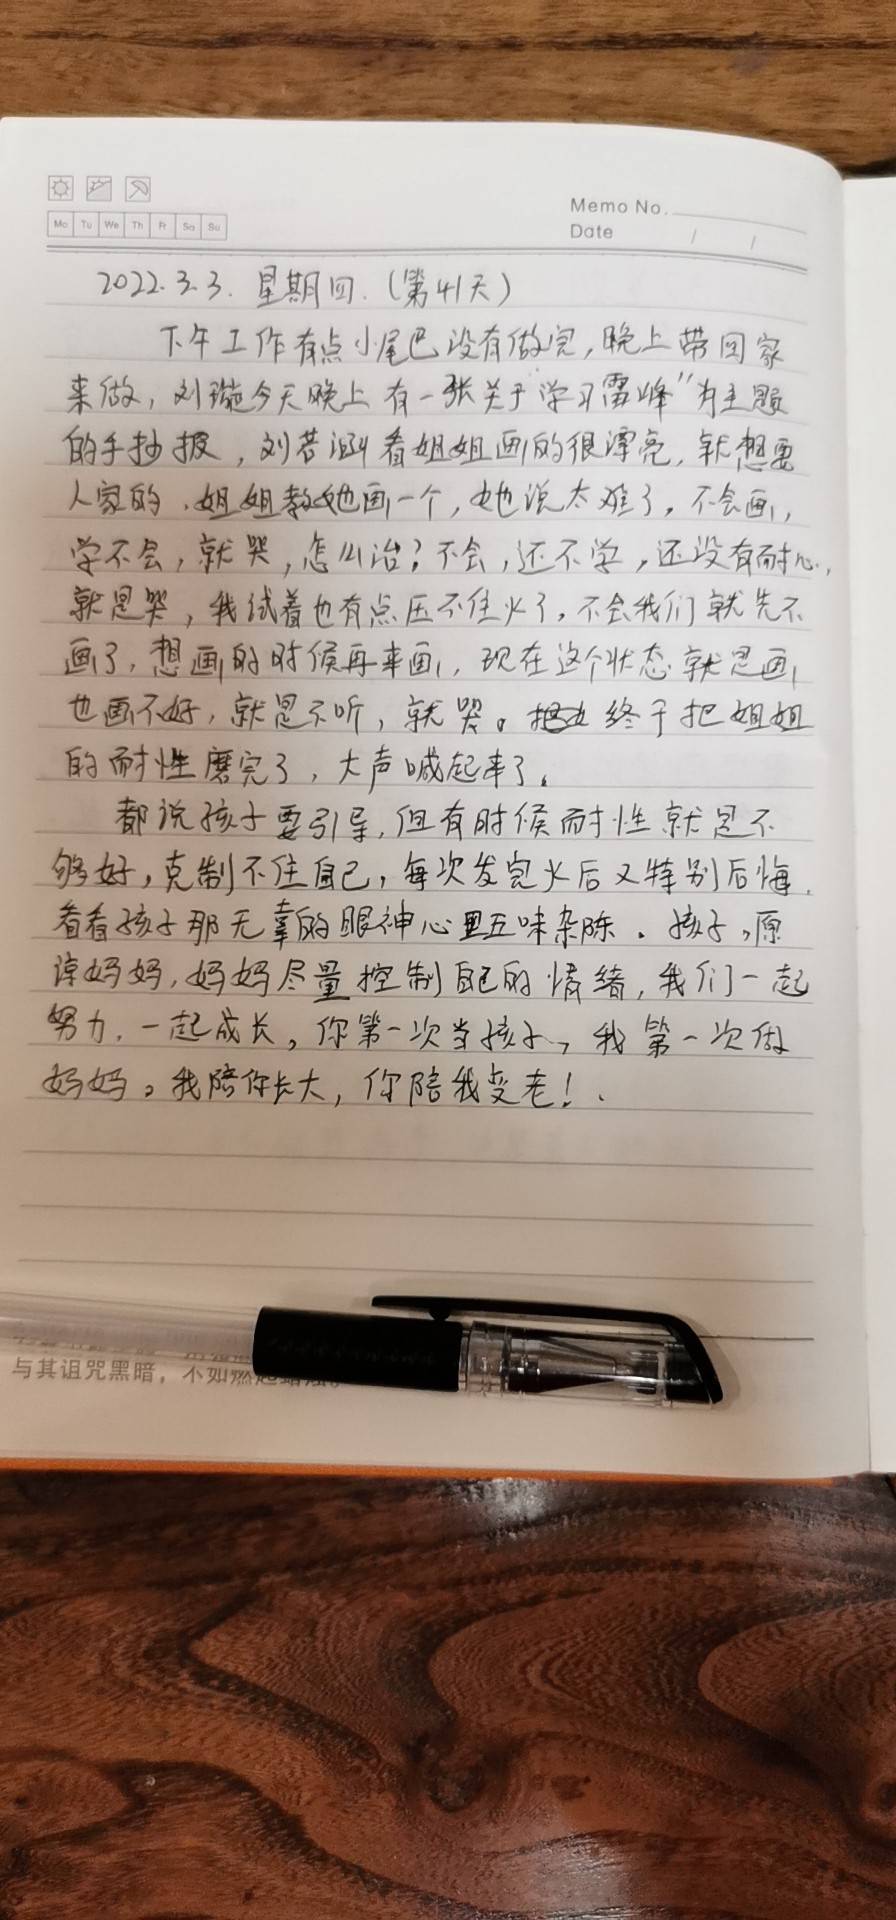 Mo Tu We Th Fr Sa Su
Memo No.
Date / /
2022.3.3. 星期四.(第41天)
下午工作有点小尾巴没有做完,晚上带回家
来做,刘璇今天晚上有一张关于学习雷峰”为主题
的手抄报,刘若涵看姐姐画的很漂亮,就想要
人家的,姐姐教她画一个,她说太难了,不会画,
学不会,就哭,怎么治?不会,还不学,还没有耐心,
就是哭,我试着也有点压不住火了,不会我们就先不
画了,想画的时候再来画,现在这个状态就是画
也画不好,就是不听,就哭。终于把姐姐
的耐性磨完了,大声喊起来了。
都说孩子要引导,但有时候耐性就是不
够好,克制不住自己,每次发完火后又特别后悔.
看看孩子那无辜的眼神心里五味杂陈。孩子,原
谅妈妈,妈妈尽量控制自己的情绪,我们一起
努力,一起成长。你第一次当孩子,我第一次做
妈妈。我陪你长大,你陪我变老!.
与其诅咒黑暗,不如燃起蜡烛。